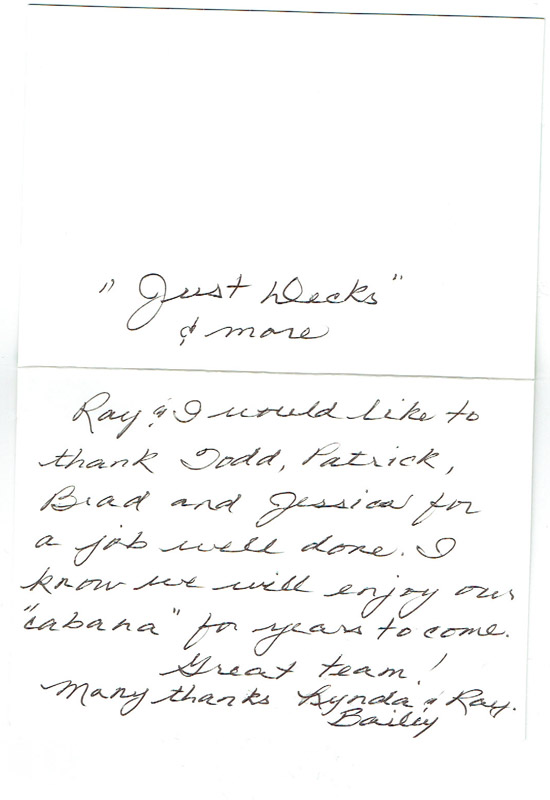 "Just Decks"
& more
Ray & I would like to
thank Todd, Patrick,
Brad and Jessica for
a job well done. I
know we will enjoy our
"cabana" for years to come.
Great team!
Many thanks Lynda & Ray.
Bailey